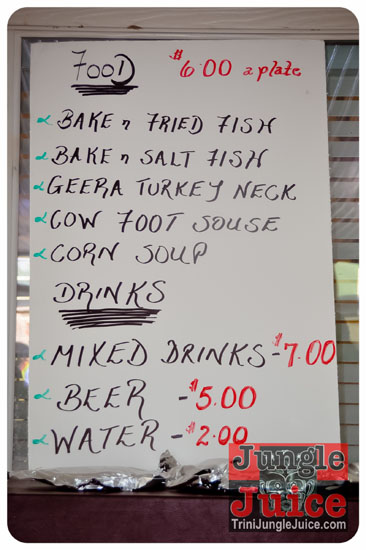 FOOD $6.00 a plate
BAKE n FRIED FISH
BAKE n SALT FISH
GEERA TURKEY NECK
COW FOOT SOUSE
CORN SOUP
DRINKS
MIXED DRINKS - $7.00
BEER - $5.00
WATER - $2.00
Jungle
Juice
TriniJungleJuice.com